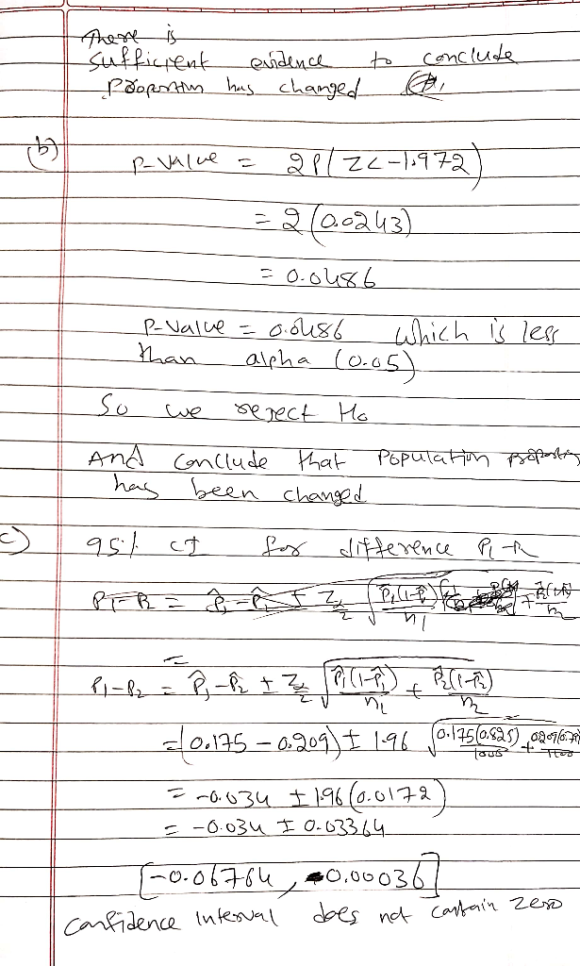 There is
sufficient evidence to conclude
Proportion has changed
(b)
P-value = 2P(Z<-1.972)
= 2(0.0243)
= 0.0486
P-value = 0.0486 which is less
than alpha (0.05)
So we reject H₀
And conclude that Population proportion
has been changed
c) 95% CI for difference P₁-P₂
P₁-P₂ = P̂₁-P̂₂ ± Z_{α/2} √(P̂₁(1-P̂₁)/n₁ + P̂₂(1-P̂₂)/n₂)
= (0.175-0.209) ± 1.96 √(0.175(0.825)/1000 + 0.209(0.79
= -0.034 ± 1.96(0.0172)
= -0.034 ± 0.03364
[-0.06764, -0.00036]
Confidence interval does not contain zero